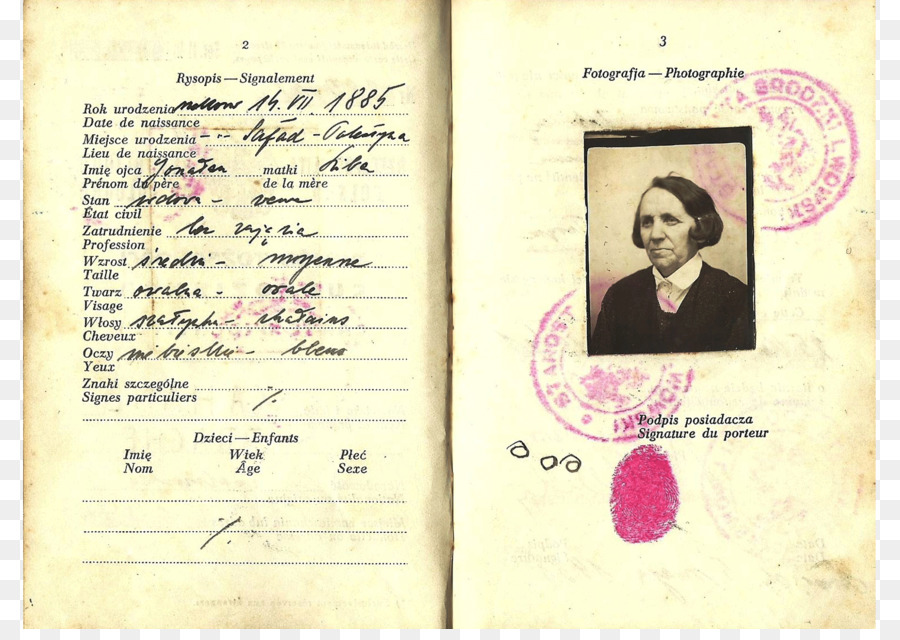 2
Rysopis — Signalement
Rok urodzenia 14. VII. 1885
Date de naissance
Miejsce urodzenia Safád - Palestyna
Lieu de naissance
Imię ojca Jonatan matki Liba
Prénom du père de la mère
Stan wdowa - veuve
État civil
Zatrudnienie bez zajęcia
Profession
Wzrost średni - moyenne
Taille
Twarz owalna - ovale
Visage
Włosy szatynka - châtains
Cheveux
Oczy niebieskie - bleus
Yeux
Znaki szczególne
Signes particuliers
Dzieci — Enfants
Imię Wiek Płeć
Nom Âge Sexe
3
Fotografja — Photographie
STAROSTA GRODZKI LWOWSKI
STAROSTA GRODZKI LWOWSKI
Podpis posiadacza
Signature du porteur